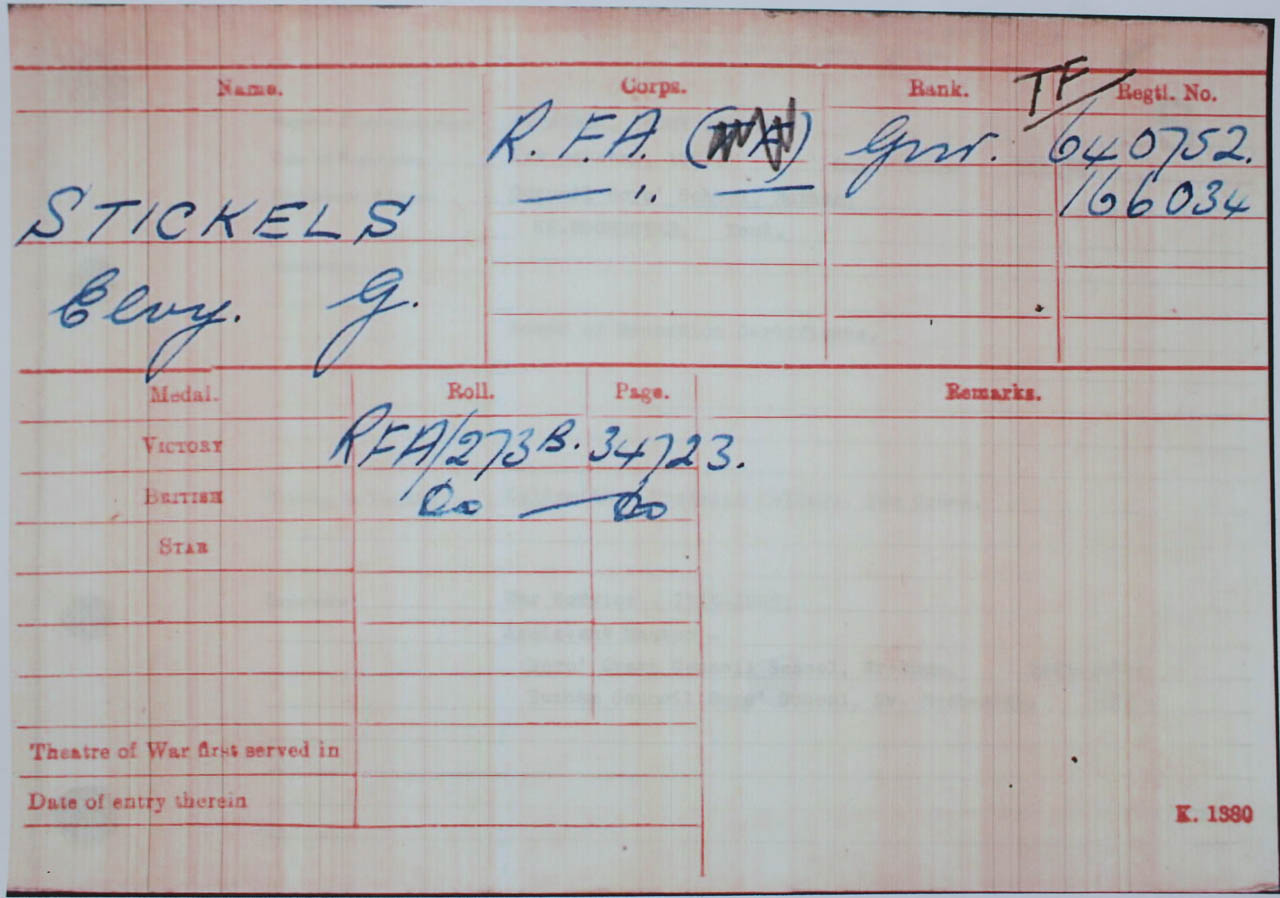 Name. Corps. Rank. TF/ Regtl. No.
R. F.A. Gnr. 640752.
— ,, — 166034
STICKELS
Elvy. G.
Medal. Roll. Page. Remarks.
VICTORY RFA/273B. 34723.
BRITISH Do — Do
STAR
Theatre of War first served in
Date of entry therein
K. 1380